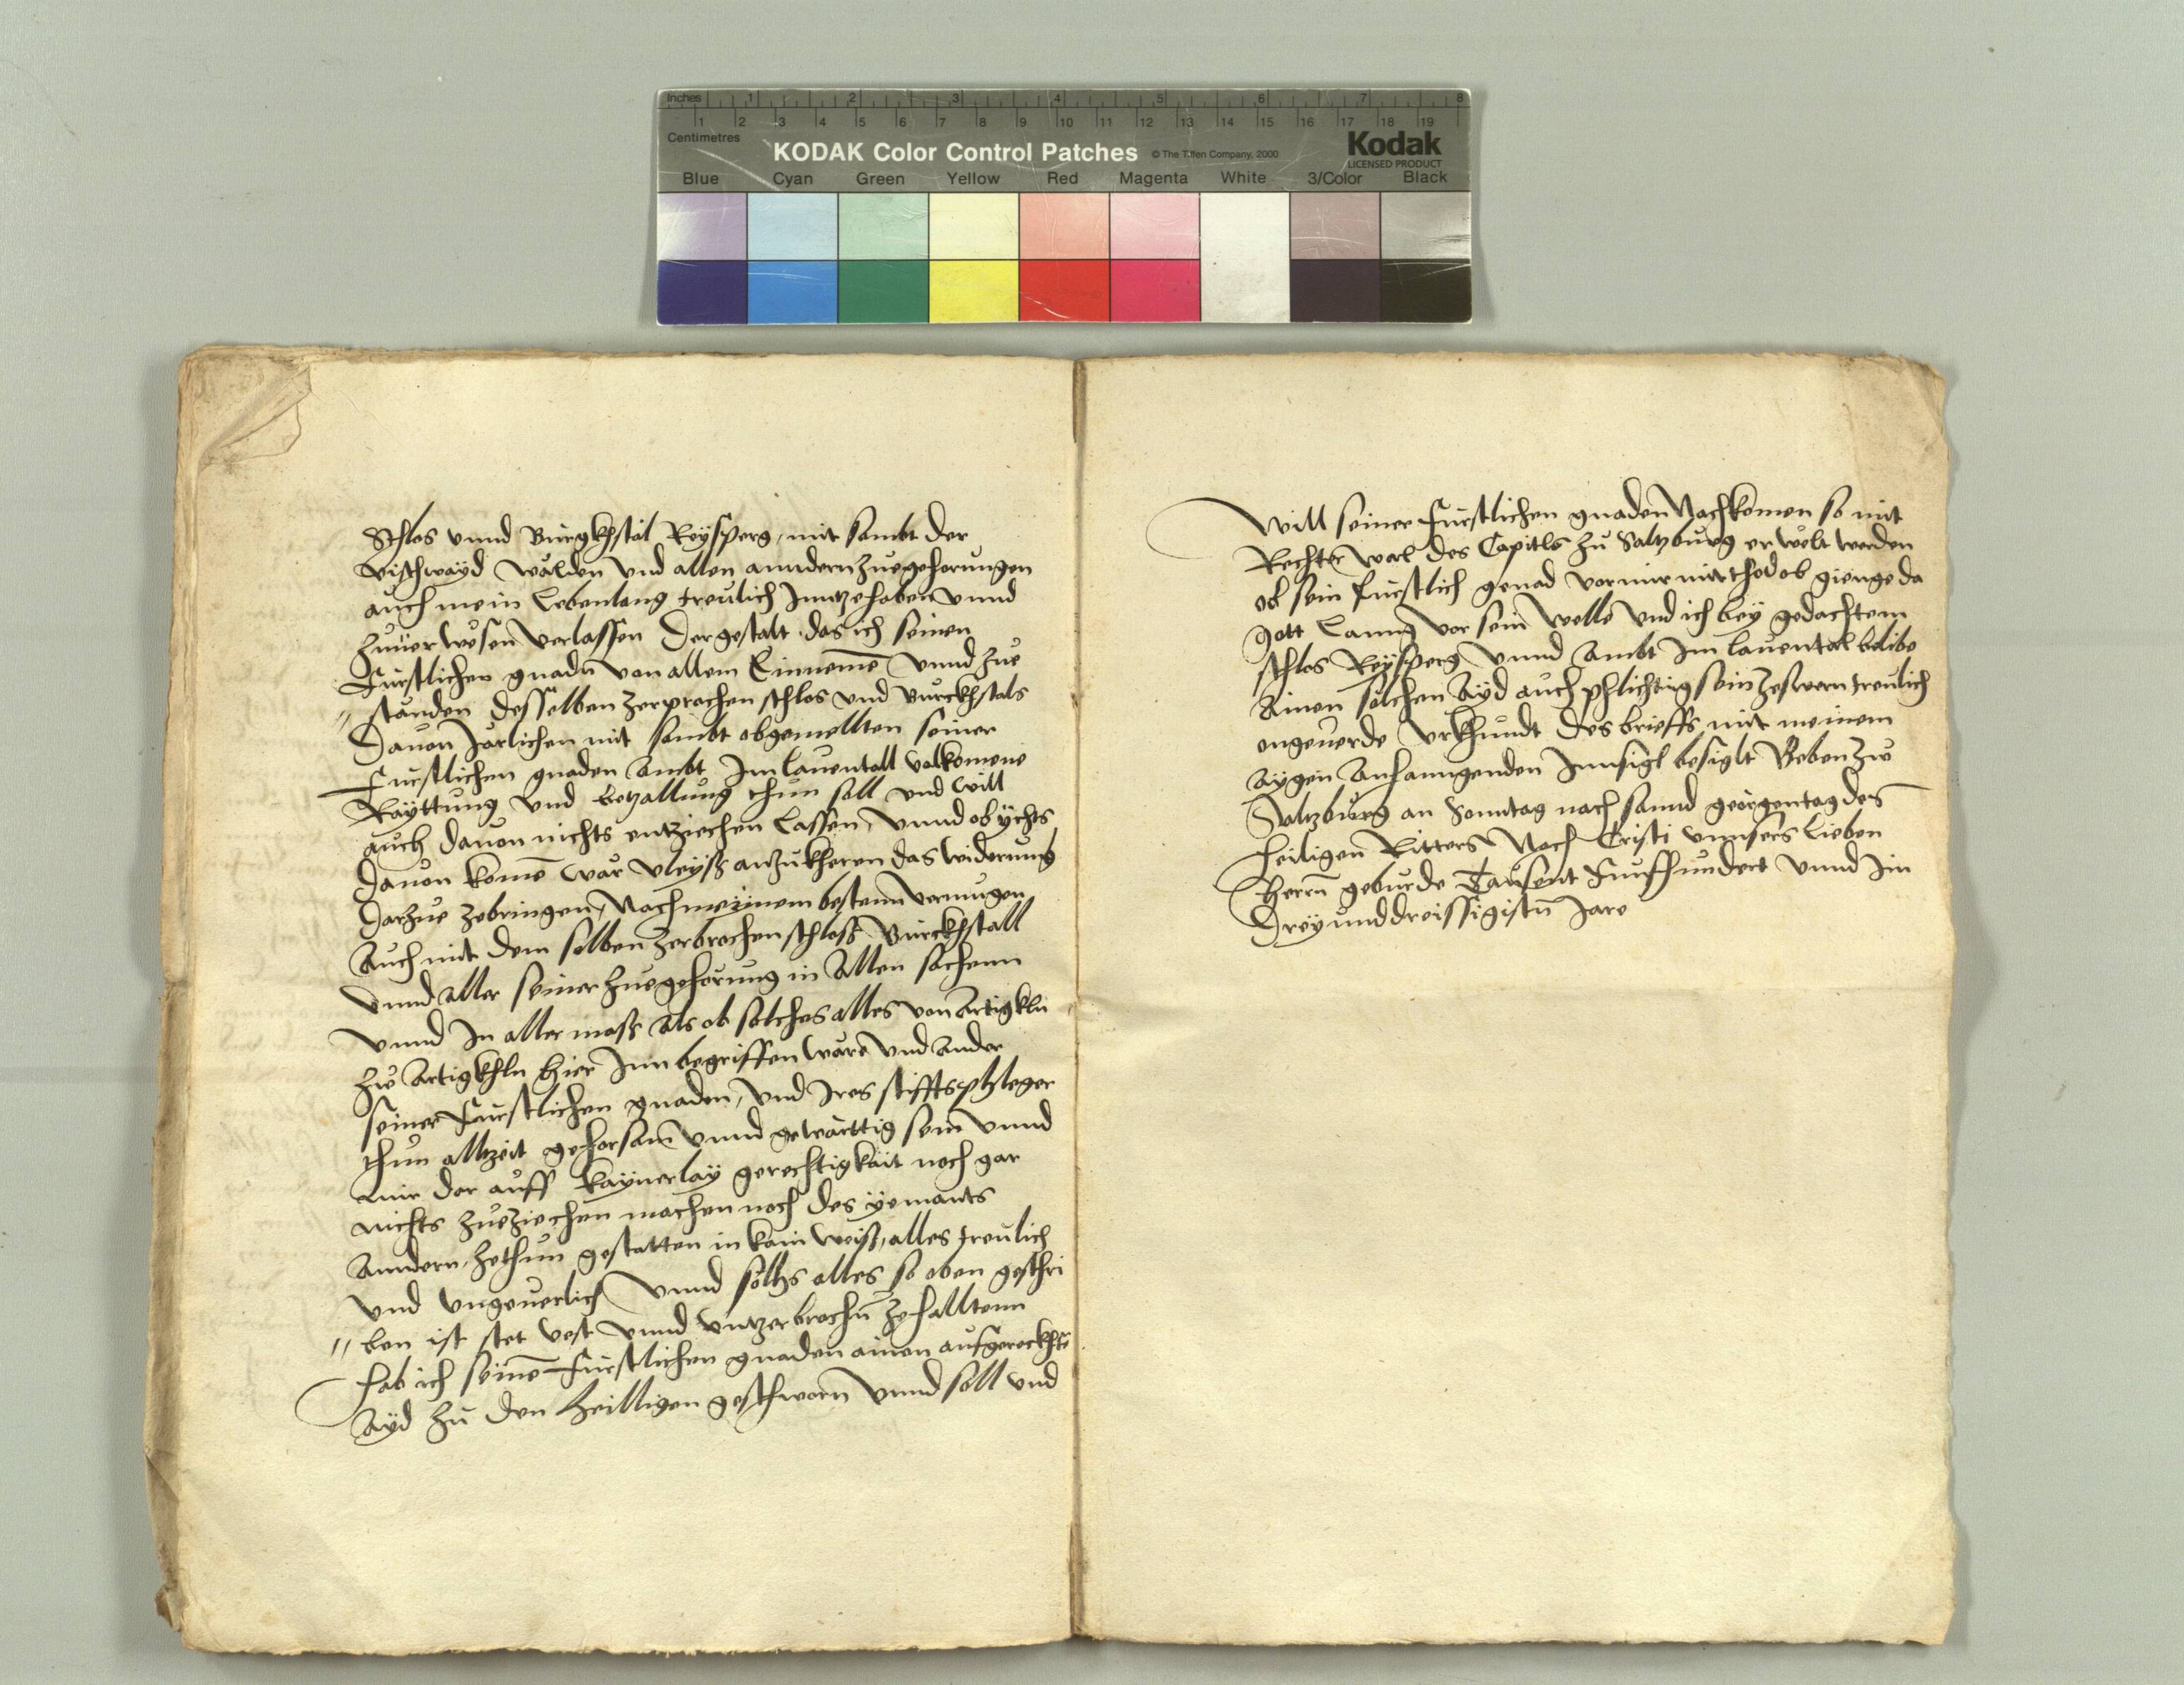 Inches 1 2 3 4 5 6 7 8
Centimetres 1 2 3 4 5 6 7 8 9 10 11 12 13 14 15 16 17 18 19
KODAK Color Control Patches © The Tiffen Company, 2000 Kodak
LICENSED PRODUCT
Blue Cyan Green Yellow Red Magenta White 3/Color Black
Schlos vnnd Burgkhstal Reysperg, mit sambt der
vischwayd wälden vnd allen anndern zuegehorungen
auch mein Lebenlang treulich Inntzehaben vnnd
zuuerwesen verlassen Dergestalt das ich seinen
Furstlichen gnadn von allem Einnemē vnnd zue
standen desselben zerprochen schlos vnd Burckhstals
Dauon Järlichen mit sambt obgemellten seiner
Furstlichen gnaden Ambt Im lauentall volkomene
Rayttung vnd betzallung thun soll vnd will
auch dauon nichts entziechen lassen, vnnd ob ychts
dauon komē wär vleyss anzukheren das widerumb
darzue zebringen, Nach meinem bestenn vermugen
Auch mit dem selben zerbrochen schloss Burckhstall
vnnd aller seiner zuegehorung in Allen sachenn
vnnd In aller mass als ob solches alles von Artigkln
zw Artigkhln hier Inn begriffen wäre vnd Ander
seiner Furstlichen gnaden, vnd Ires stiffts phleger
thun allzeit gehorsam vnnd gewärttig sein vnnd
mir dar auff kaynerlay gerechtigkait noch gar
nichts zueziechen machen noch des yemants
Anndern zethun gestatten in kain weiss, alles treulich
vnd vngeuerlich vnnd sölhs alles so oben geschri
ben ist stet vest vnnd vntzerbrochn zehalltenn
hab ich seinē Furstlichen gnaden ainen aufgereckhtē
Ayd zu den Heilligen geschworn vnnd soll vnd
will seiner Furstlichen gnaden Nachkomen so mit
Rechter wal des Capitls zu Saltzburg erwelt werden
ob sein furstlich genad vor mir mit thod ob gienge da
gott Lanng vor sein welle vnd ich bey gedachtem
schlos Reysperg vnnd Ambt Im lauental belibe
Ainen solchen Ayd auch phlichtig sein zeswern treulich
ongeuerde vrkhundt des brieffs mit meinem
Aygen Anhanngenden Innsigl besiglt Geben zw
Saltzburg an Sonntag nach sannd georgentag des
heiligen Ritters Nach Cristi vnnsers lieben
herrn geburde Tausent Funfhundert vnnd Im
Dreyunddreissigistn Jare